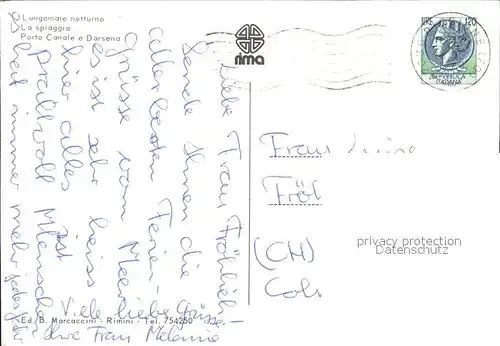 Lungomare notturno
La spiaggia
Porto Canale e Darsena
rima
LIRE 120
REPUBBLICA
ITALIANA
Liebe Frau Fröhlich
Sende Ihnen die
allerbesten Ferien-
grüsse vom Meer
es ist sehr heiss
hier alles ist
prallvoll Menschen
immer mehr jedes
Viele liebe Grüsse
Ihre Frau
Frau
Fröl
(CH)
Col
privacy protection
Datenschutz
Ed. B. Marcaccini - Rimini - Tel. 754250